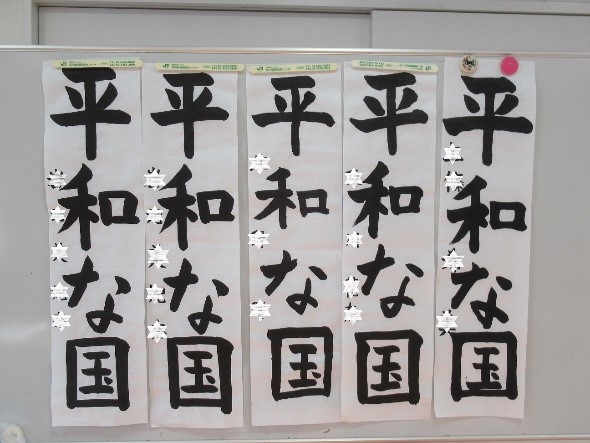 平和な国
平和な国
平和な国
平和な国
平和な国